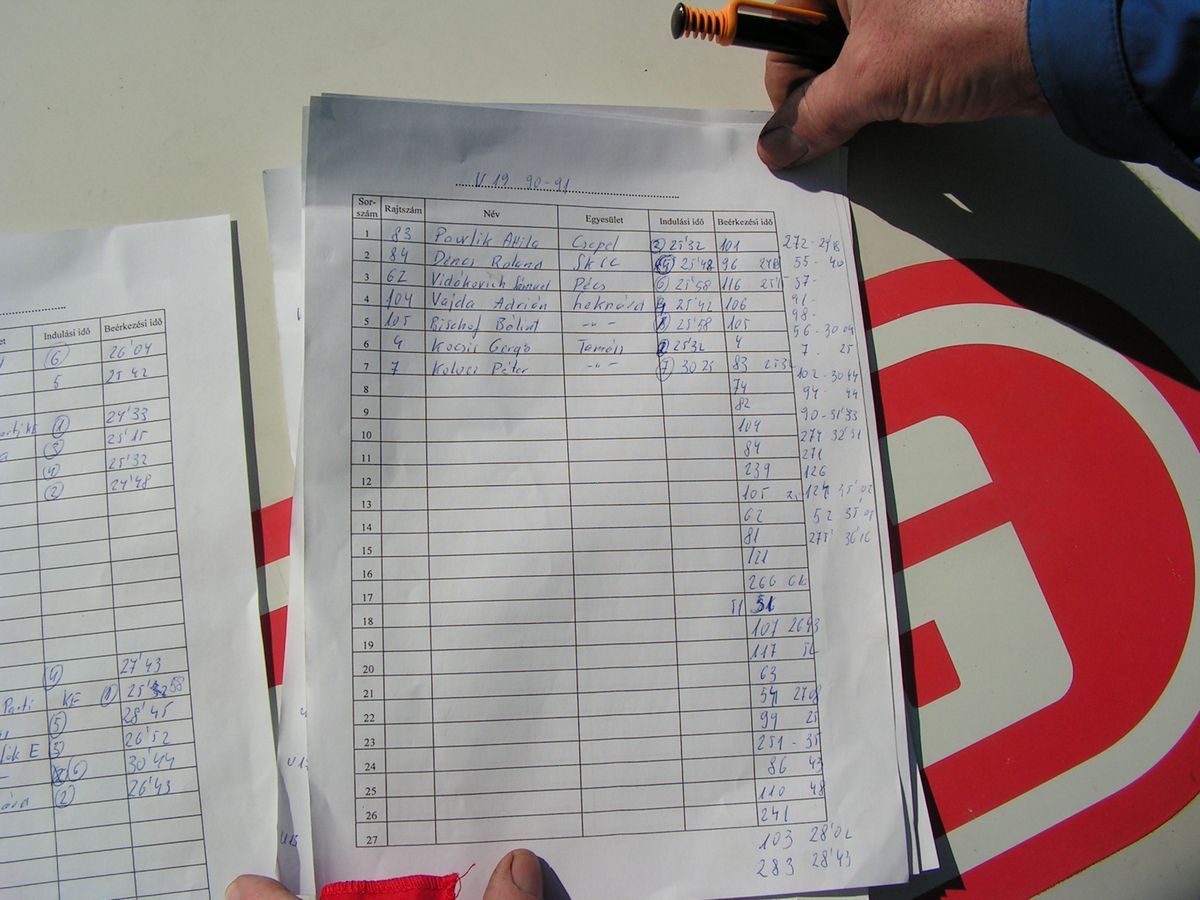 U 19 90-91
Sor-szám Rajtszám Név Egyesület Indulási idő Beérkezési idő
1 83 Pavlik Attila Csepel 25'32 101 272 -
2 84 Roland SKSC 25'48 96 55 - 40
3 62 Pécs 6 25'58 116 57 -
4 104 Vajda Adrián 4 25'42 106 91 -
98 -
5 105 Bischof Bálint -"- 25'58 105 56 - 30 04
6 4 Kocsis Gergő 25'32 4 7 - 25
7 7 Péter -"- 7 30 25 83 102 - 30 44
8 74 94 - 44
9 82 90 -
10 104 274 32'51
11 84 271
12 239 126
13 105 35'02
14 62 52
15 81 275' 36'16
16 121
17 266
18 51 51
19 107 26 43
20 117 52
21 63
22 54 27 08
23 99 25
24 251 - 35
25 86 43
26 110 48
27 241
103 28'02
283 28'43
Indulási idő Beérkezési idő
6 26'04
5 25'42
1 24'33
3 25'15
4 25'32
2 24'48
4 27'43
Parti KE 1 58
5 28'45
E 3 26'52
6 30'44
2 26'43